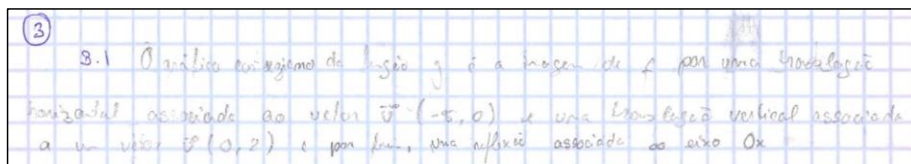 3
3.1 O gráfico da função g é a imagem de f por uma translação
horizontal associada ao vetor v (-5, 0) e uma translação vertical associada
a um vetor v (0, 2) e por fim, uma reflexão associada ao eixo Ox